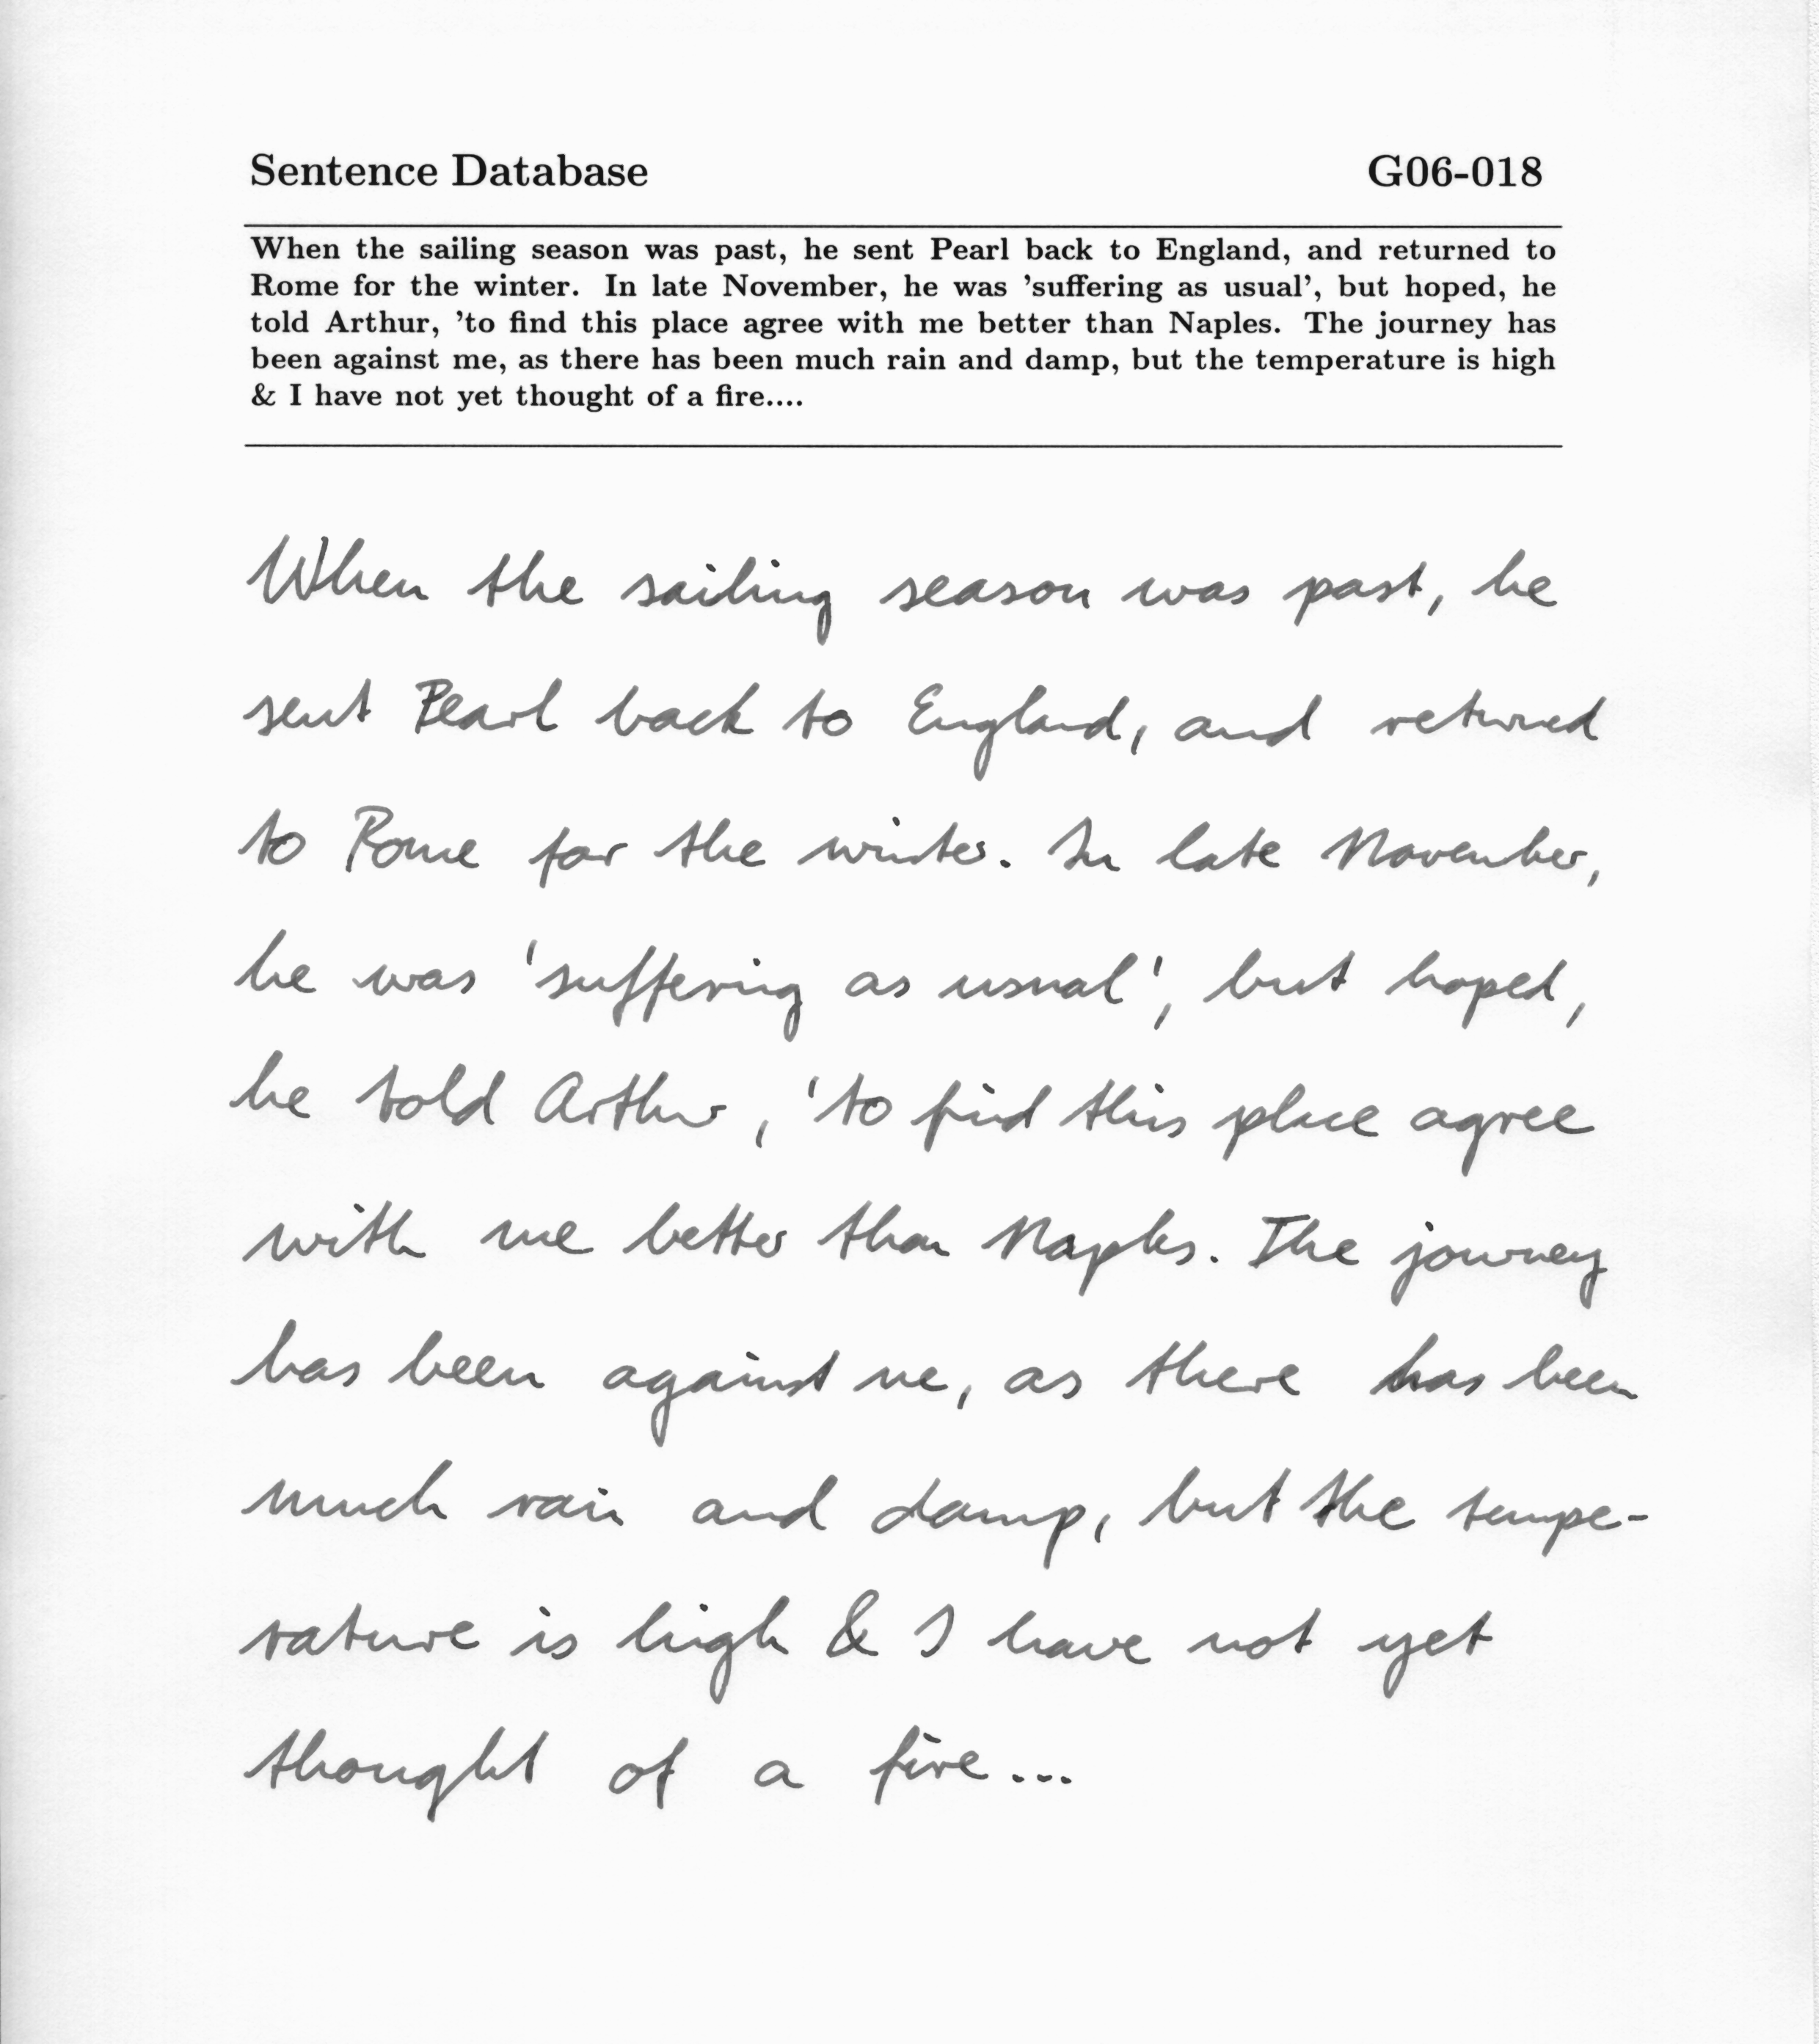 Sentence Database G06-018
When the sailing season was past, he sent Pearl back to England, and returned to
Rome for the winter. In late November, he was 'suffering as usual', but hoped, he
told Arthur, 'to find this place agree with me better than Naples. The journey has
been against me, as there has been much rain and damp, but the temperature is high
& I have not yet thought of a fire....
When the sailing season was past, he
sent Pearl back to England, and returned
to Rome for the winter. In late November,
he was 'suffering as usual', but hoped,
he told Arthur, 'to find this place agree
with me better than Naples. The journey
has been against me, as there has been
much rain and damp, but the tempe-
rature is high & I have not yet
thought of a fire...